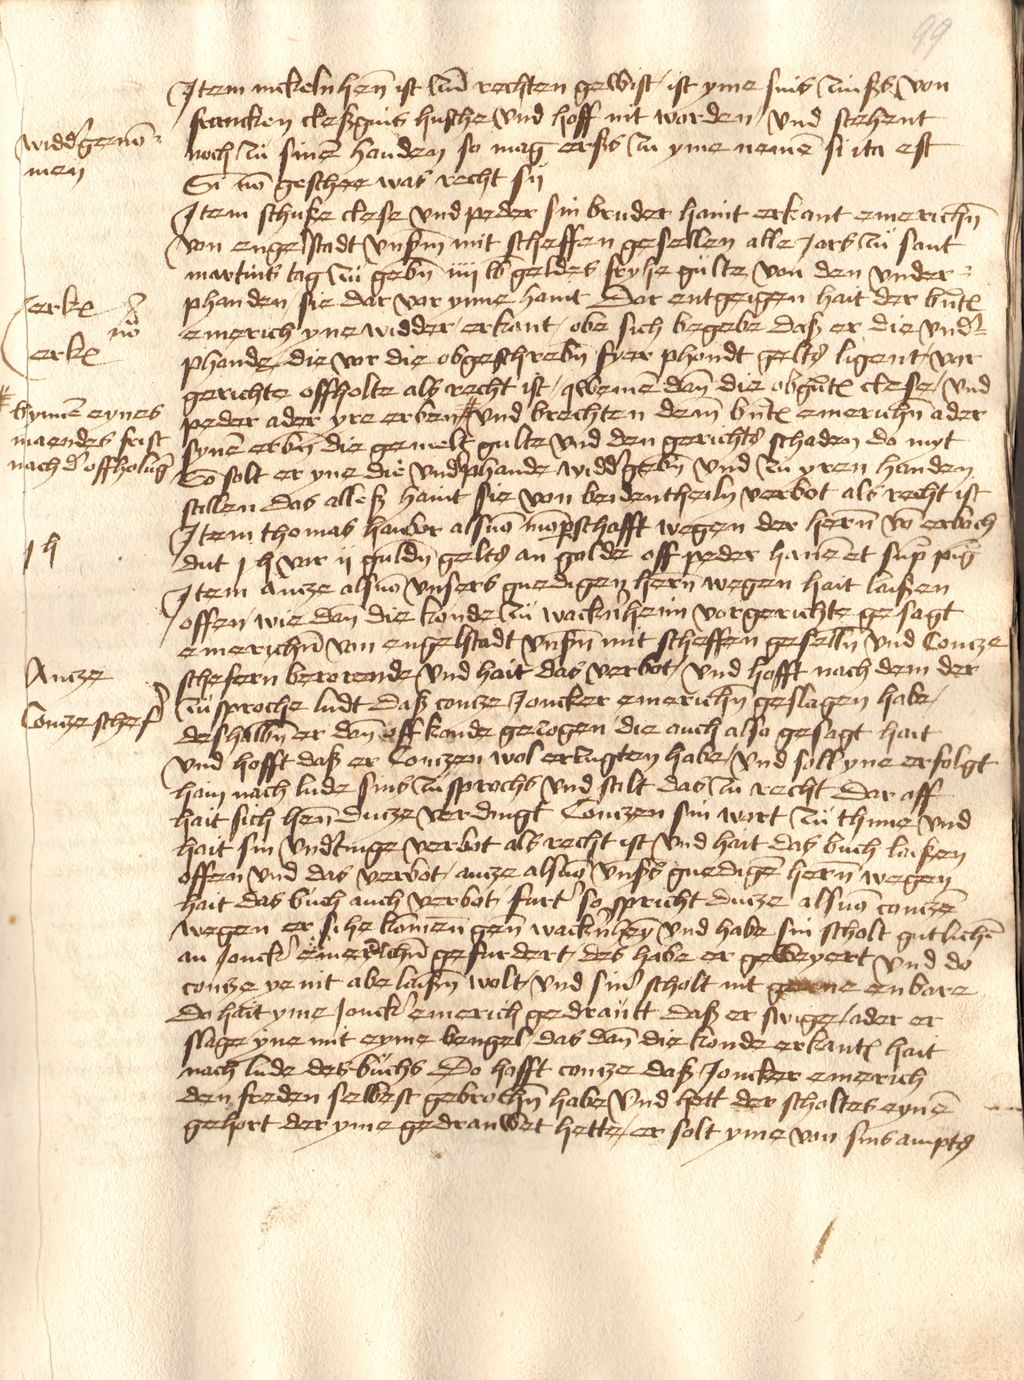 99
Item nickeln hen̄ ist zu rechten gewist ist yme sins zinßs von
francken cleßgins husche und hoff nit worden und stehent
widd' genō-
men
noch zu sinē handen so mag erßs zu yme nemē si ita est
Si nō geschee was recht sij
Item schuße clese und peder sin bruder haint erkant emerichn̄
von engelstadt unsrm mit scheffen gesellen alle Jors zu sant
martins tag zu gebn̄ iiij lb geldes fryhe gulte von den under-
erk
nō
phanden sie dar vor yme haint Dor entgeigen hait der bn̄t
emerich yne widder erkant obe sich begebe daß er die und'-
erk
phande die vor die obgeschrebn̄ fyer phondt gelts ligent vor
gerichte offholte als recht ist qwemē dan̄ die obgn̄t clese und
# bynnē eynes
maendes frist
nach d' offholūg
peder ader yre erben # und brechten dem bn̄t emerichn̄ ader
synē erbn̄ die gemelt gulte und den gerichts schaden do myt
So solt er yne die und'phande widd' gebn̄ und zu yren handen
stillen das alleß haint sie von beidentheiln verbot als recht ist
Item thomas hauwr alsuō mōperschafft wegen der hern̄ vō erbach
1 h
dut 1 h vor ij guldn̄ gelts an golde off peder hanē et sup̄ pīg
Item Ancze alsuō unsers gnedigen hern̄ wegen hait laißen
offen wie dan die konde zu wackn̄heim vorgerichte gesagt
emerichn̄ von engelstadt unsrm mit scheffen geselln̄ und Concze
Ancze
schefern berorende und hait das verbot und hofft nach dem der
Concze schef'
zu sproche ludt daß concze Joncker emerichn̄ geslagen habe
deshalbn̄ er dan̄ off konde gezogen die auch also gesagt hait
und hofft daß er Conczen wol erzugten habe und soll yne erfolgt
hain nach lude sins zu sprochs und stilt das zu recht Dar off
hait sich hen̄ ducze verdingt Conczen sin wort zu thune und
hait sin und'tinge verbot als recht ist und hait das buch laißen
offen und das verbot ancze alsuō unsrs gnedigē hern̄ wegen
hait das buch auch verbot furt' so spricht ducze alsuō conczē
wegen er sihe komen gen̄ wackn̄hey̅ und habe sin scholt gutlichē
an Jonck' emerichn̄ gefurdert des habe er geweyert und do
concze ye nit abe laißn̄ wolt und sin' scholt nit enbare
Do hait yme Jonck' emerich gedrautt daß er swige ader er
slage yne mit eyme bengel das dan̄ die konde erkant hait
nach lude des buchs Do hofft concze daß Joncker emerich
den freden selbest gebrochn̄ habe und hett der scholtes eynē
gehort der yme gedrauwet hette er solt yme von sins ampts